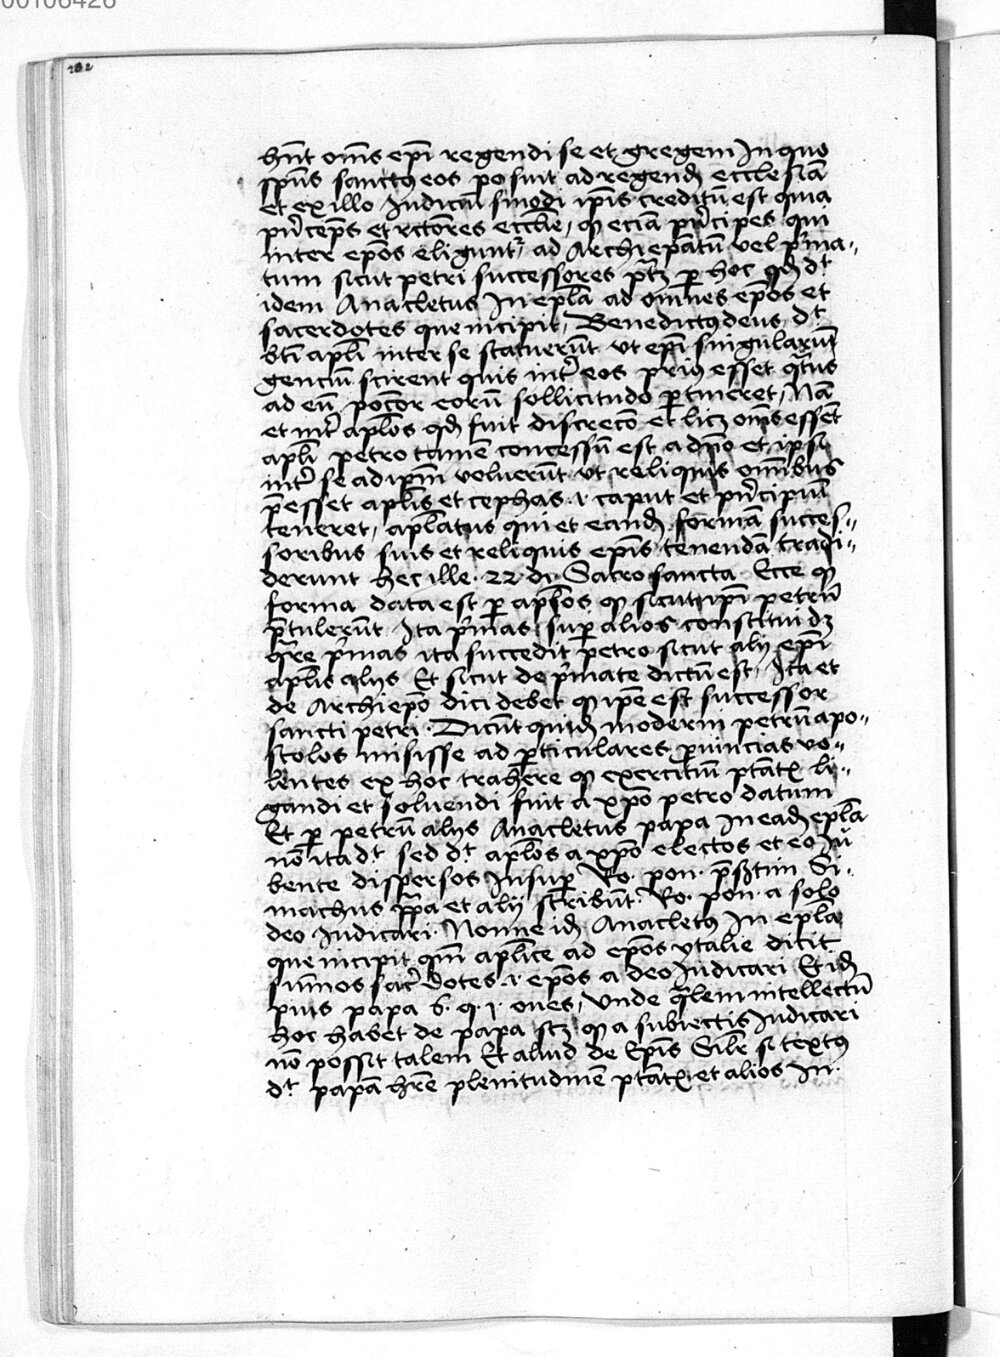 00106426
202
hn̄t om̄s ep̄i regendi se et gregem In quo
sp̄us sanctꝰ eos posuit ad regend ecclesiā
et ex illo Iudiciū sinodi ip̄is creditū est quia
prīceps et rctores eccl̄ie, ꝙ eciā prīcipes qui
inter ep̄os eliguntᷣ ad Archiep̄atū vel p̄ma-
tum sicut petri successores pꝫ ꝑ hoc qd dt
idem Anacletus In epl̄a ad omnes ep̄os et
sacerdotes que incipit, Benedictꝰ deus dt
bt̄i apl̄i inter se statuerūt vt ep̄i singularum
genciū scirent quis int̄ eos priꝰ esset qt̄us
ad eū pocior eorū sollicitudo ꝑtineret, Nā
et int̄ apl̄os qd fuit discreco et licꝫ om̄s essēt
apl̄i petro tamē concessū est a dn̄o et ipsi
int̄ se ad ip̄m voluerūt vt reliquis om̄ibus
p̄esset apl̄is et cephas .i. caput et prīcipiū
teneret, apl̄atus qui et eand formā succes-
soribus suis et reliquis ep̄is tenendā tradi-
derunt hec ille. 22 di. Sacrosancta Ecce ꝙ
forma data est ꝑ apl̄os ꝙ sicut ip̄i petrū
p̄tulerūt Ita p̄mas suꝑ alios constitui dꝫ
qr̄e p̄mas ita succedit petro sicut alij ep̄i
apl̄is alijs Et sicut de p̄mate dictū est, Ita et
de Archiep̄o dici debet ꝙ ip̄e est successor
sancti petri. Dicūt quid moderni petrū apo-
stolos misisse ad ꝑticulares ꝓuincias vo-
lentes ex hoc trahere ꝙ exercitiū ptāt li-
gandi et soluendi fuit a xp̄o petro datum
Et ꝑ petrū alijs Anacletus papa In ead epl̄a
nō ita dt sed dt apl̄os a xp̄o electos et eo Iu
bente dispersos Insuꝑ Ro. pon. p̄sertim Si-
machus pp̄a et alij scribūt. Ro. pon. a solo
deo Iudicari. Nonne id Anacletꝰ In epl̄a
que incipit qm̄ apl̄ice ad ep̄os ytalie dicit
sum̄os sacerdotes .i. ep̄os a deo Iudicari Et id
pius papa 6. q. 1. oues, Vnde qlem intellectū
hoc habet de papa scꝫ ꝙ a subiectis Iudicari
nō possit talem Et aliud de Ep̄is Silr̄ si textꝰ
dt papā hr̄e plenitudinē ptāt et alios In